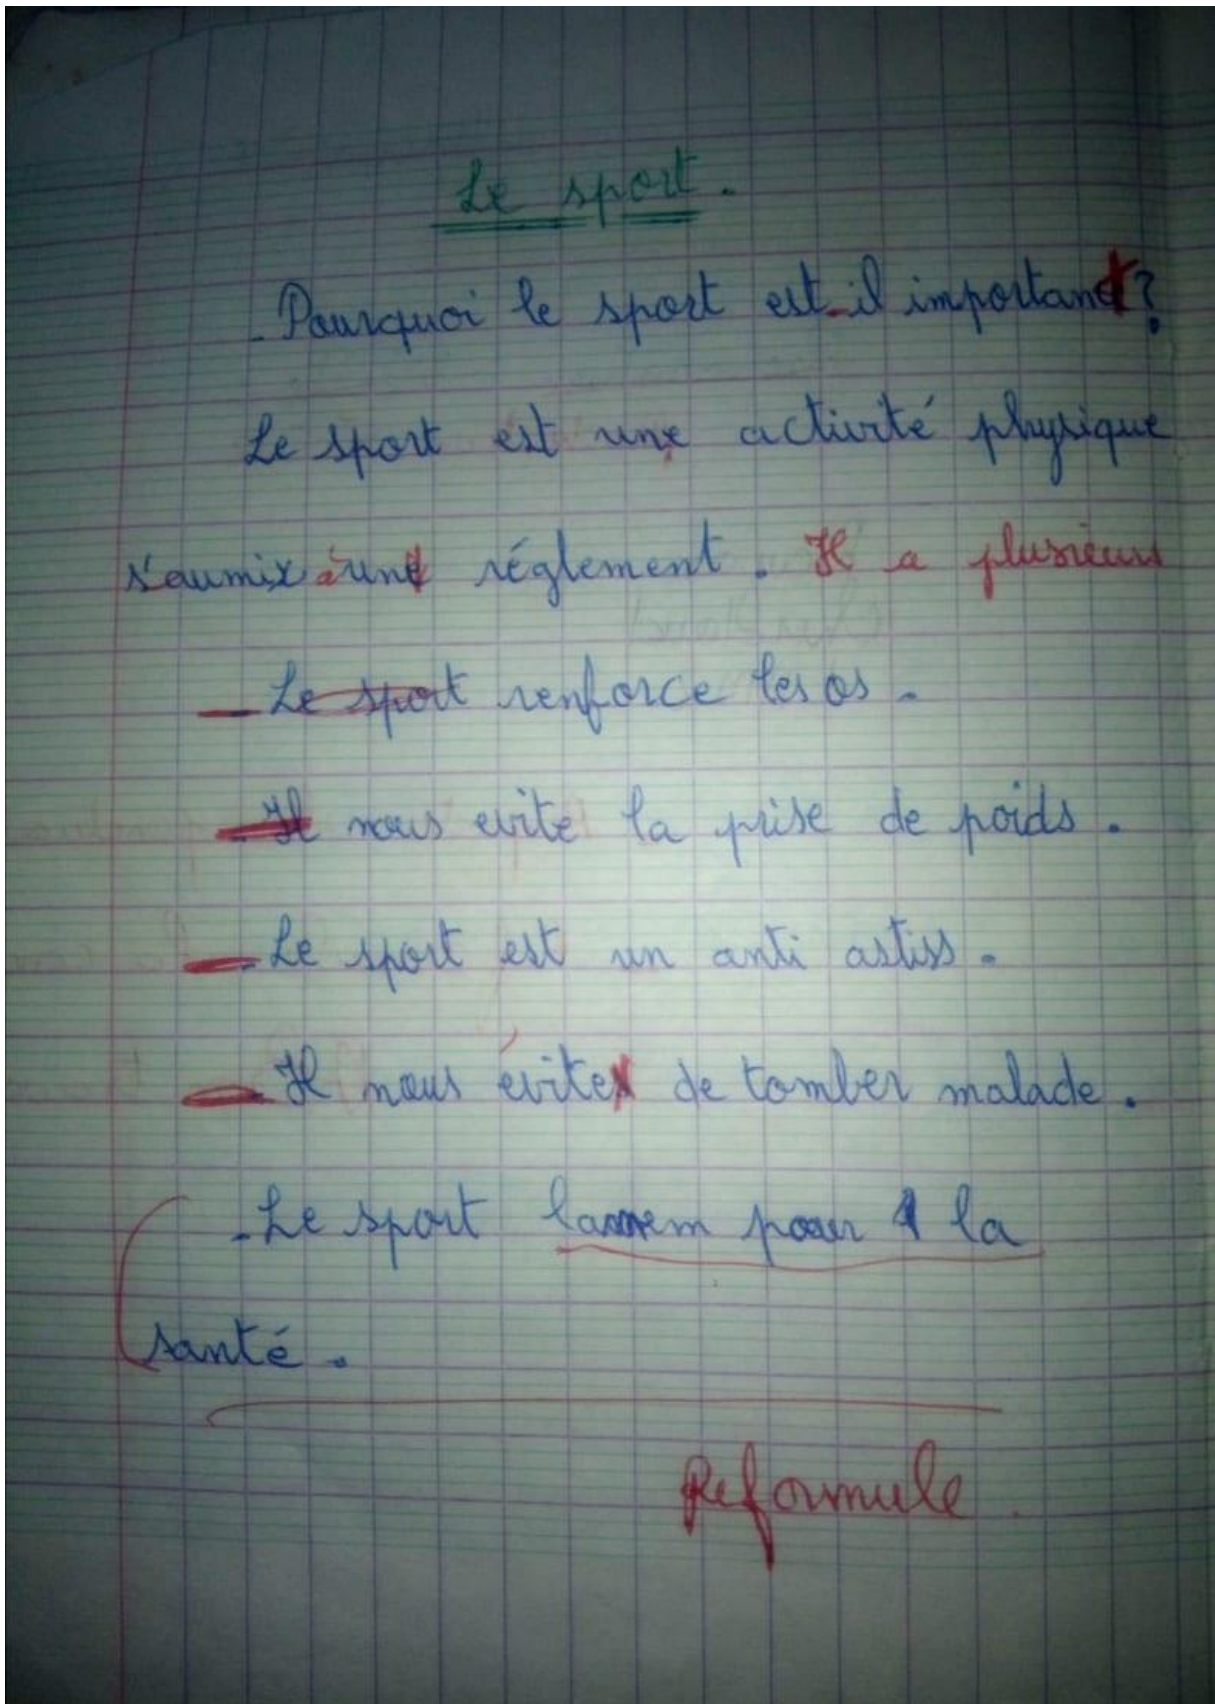 Le sport.
- Pourquoi le sport est-il important?
Le sport est une activité physique
s'aumix à un réglement. Il a plusieurs
- Le sport renforce les os.
- Il nous evite la prise de poids.
- Le sport est un anti astiss.
- Il nous évite de tomber malade.
- Le sport pour la
santé.
Reformule.